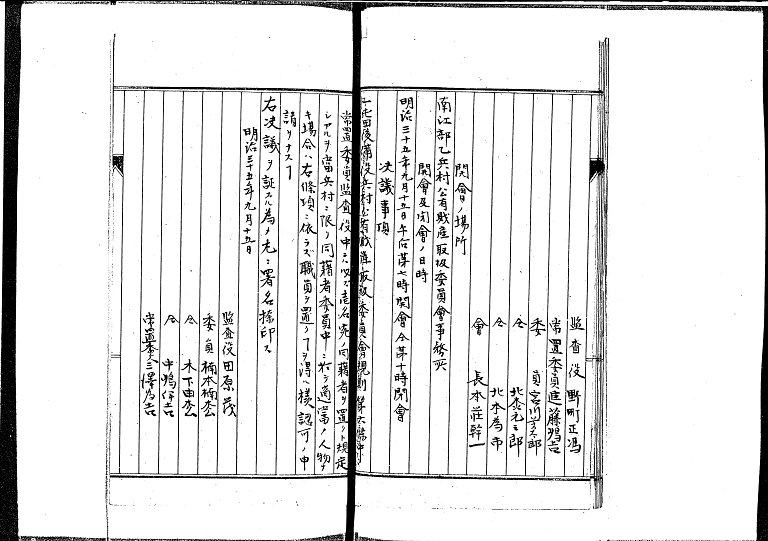 監査役 野町正馮
常置委員 進藤鴉吉
委員 宮川
仝 北
仝 北本為市
會長 本荘幹一
開會ノ場所
南江部乙兵村公有財産取扱委員會事務所
開會及閉會ノ日時
明治三十五年九月十五日午后第七時開會仝第十時閉會
決議事項
後備役兵村公有財産取扱委員會規則第六條中
常置委員監査役中ニ必ズ壱名宛ノ同藉者ヲ置クト規定
シアルヲ當兵村ニ限リ同藉者委員中ニ於テ適當ノ人物ナ
キ場合ハ右條項ニ依ラズ職員ヲ置クヿヲ得ル様認可ノ申
請ヲナスヿ
右決議ヲ証スル為メ尢ニ署名捺印ス
明治三十五年九月十五日
監査役 田原茂
委員 楠本楠
仝 木下由
仝 中鴨伊吉
常置委 三澤為吉